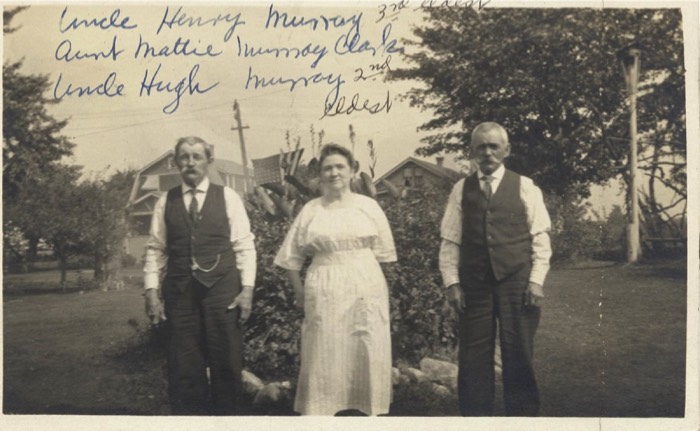 Uncle Henry Murray 3rd eldest
Aunt Mattie Murray Clark
Uncle Hugh Murray 2nd
eldest